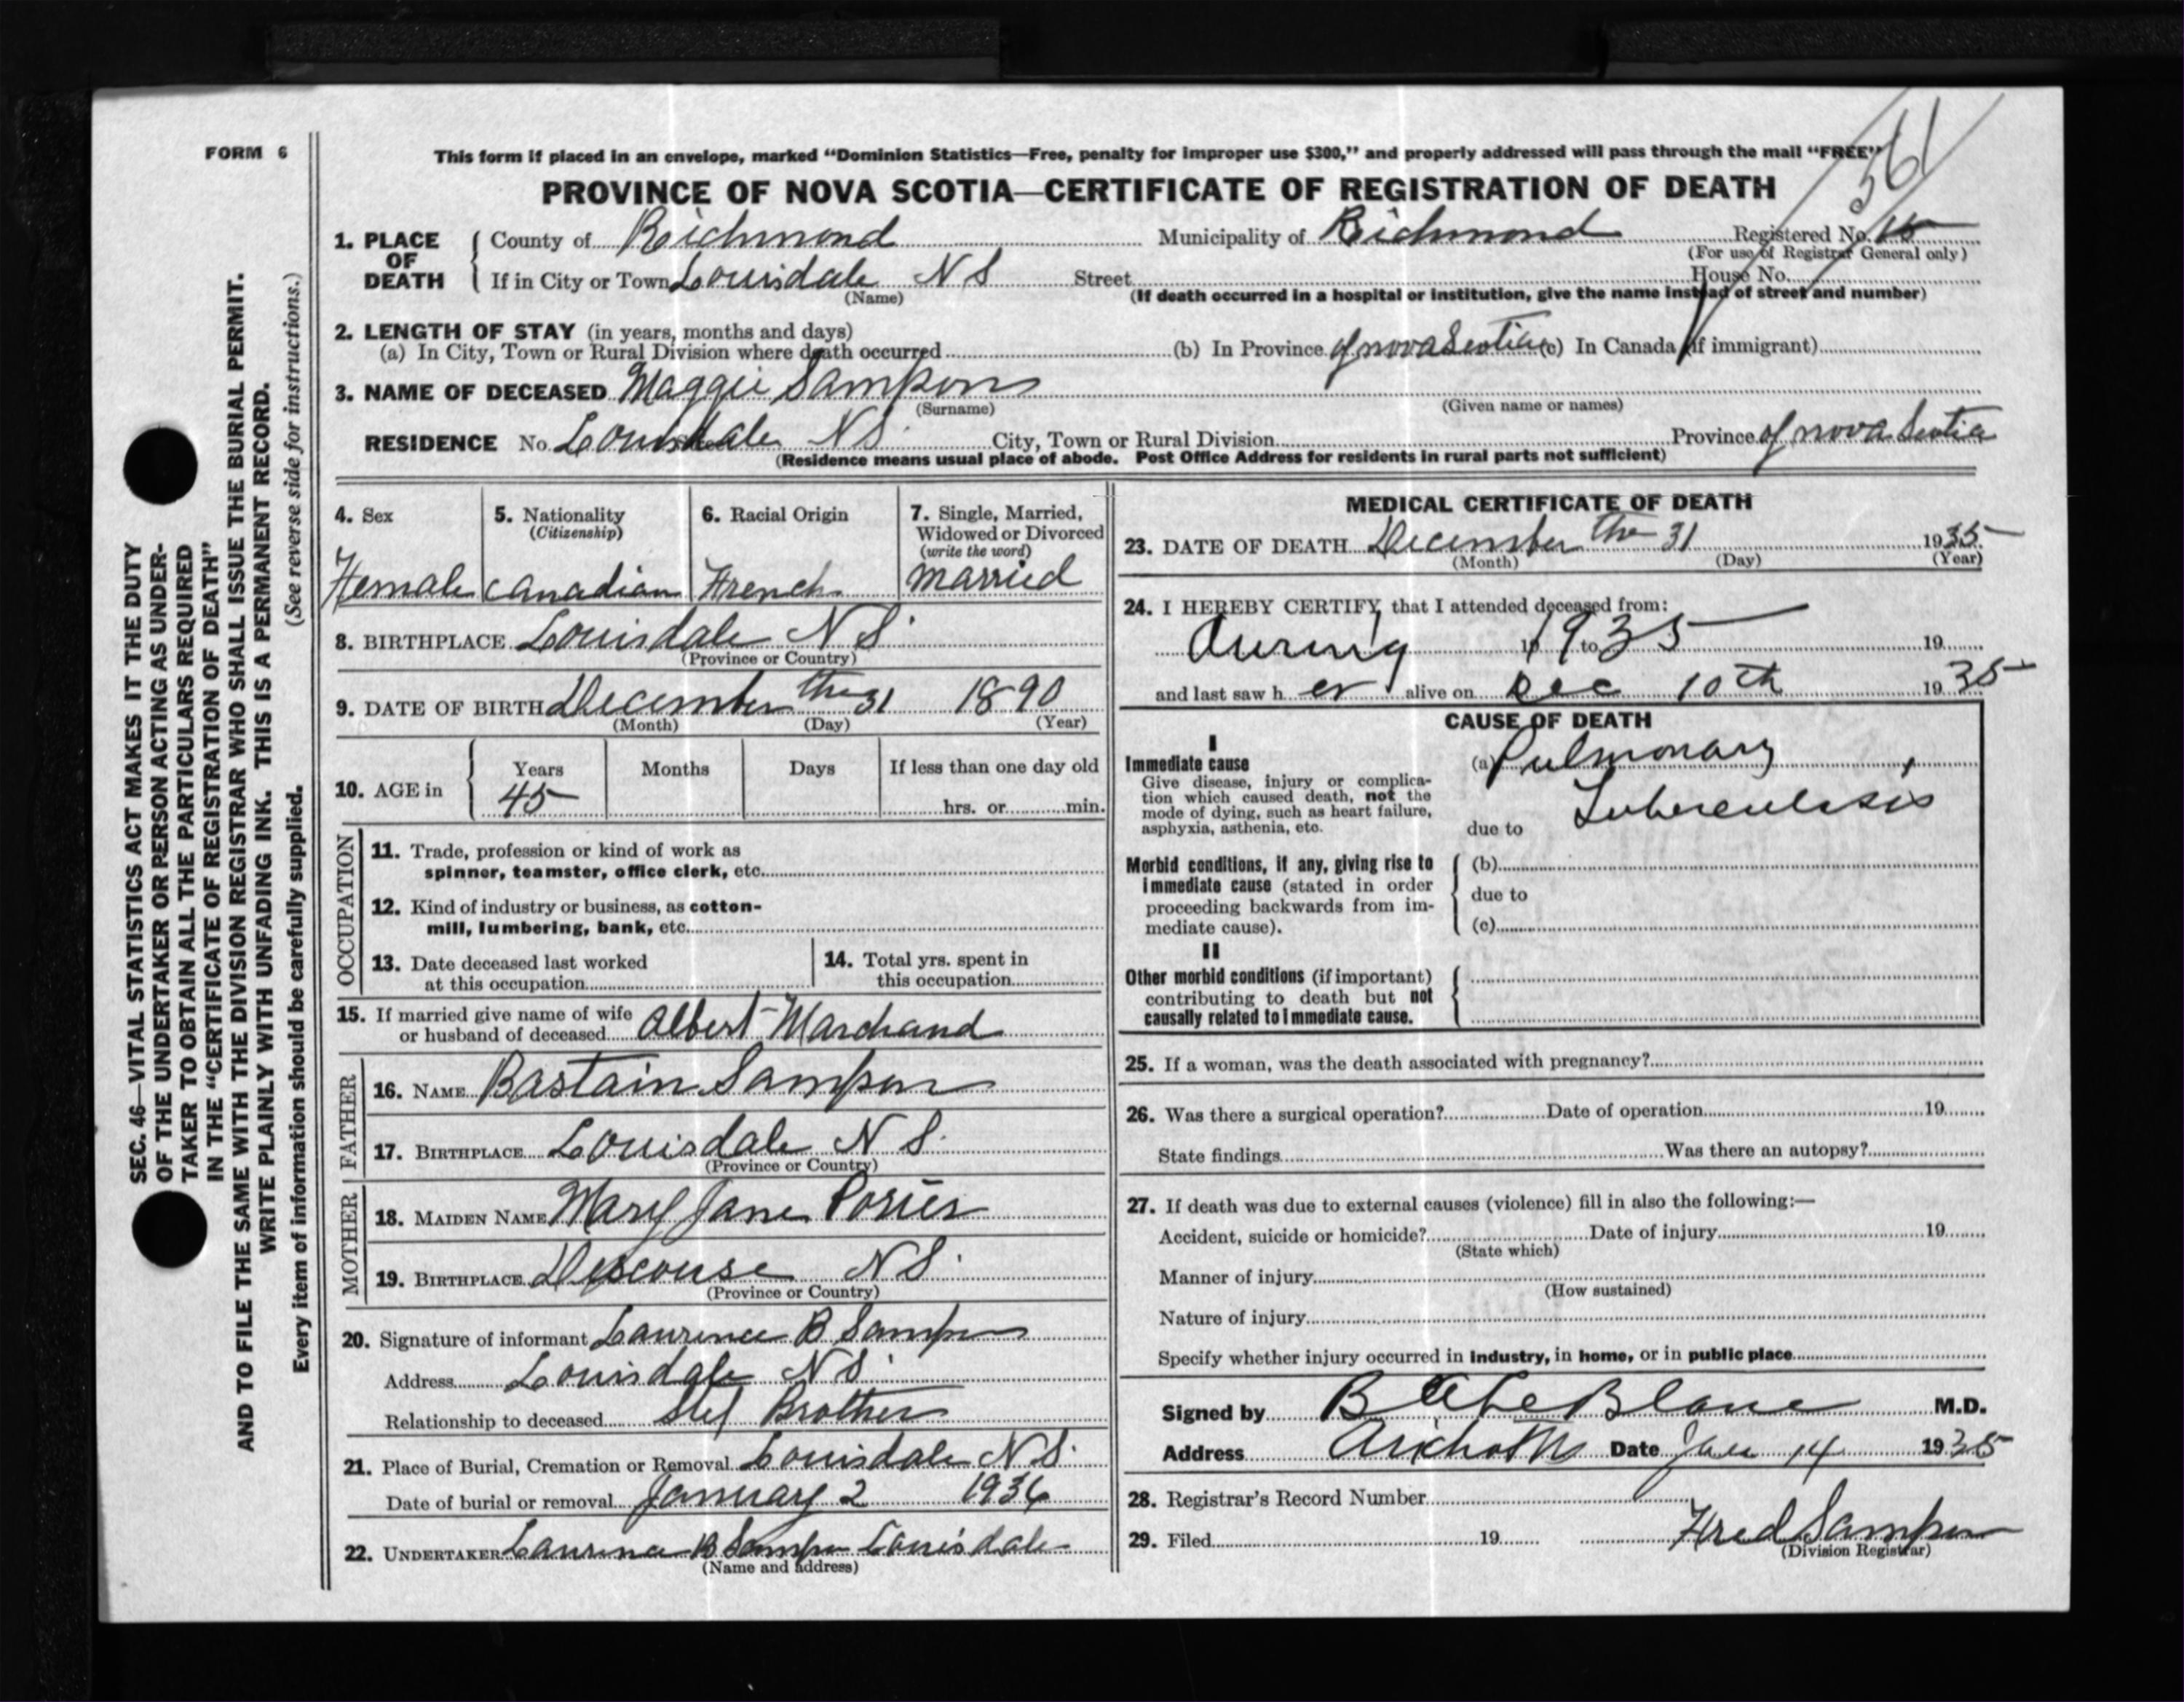 FORM 6
This form if placed in an envelope, marked "Dominion Statistics—Free, penalty for improper use $300," and properly addressed will pass through the mail "FREE"
561
PROVINCE OF NOVA SCOTIA—CERTIFICATE OF REGISTRATION OF DEATH
1. PLACE OF DEATH
County of Richmond Municipality of Richmond Registered No.
(For use of Registrar General only)
If in City or Town Louisdale N S Street House No.
(Name) (If death occurred in a hospital or institution, give the name instead of street and number)
2. LENGTH OF STAY (in years, months and days)
(a) In City, Town or Rural Division where death occurred (b) In Province of nova Scotia (c) In Canada (if immigrant)
3. NAME OF DECEASED Maggie Sampson
(Surname) (Given name or names)
RESIDENCE No. Louisdale N S. City, Town or Rural Division Province of nova Scotia
(Residence means usual place of abode. Post Office Address for residents in rural parts not sufficient)
4. Sex
Female
5. Nationality
(Citizenship)
Canadian
6. Racial Origin
French
7. Single, Married,
Widowed or Divorced
(write the word)
married
8. BIRTHPLACE Louisdale N S.
(Province or Country)
9. DATE OF BIRTH December the 31 1890
(Month) (Day) (Year)
10. AGE in
Years Months Days If less than one day old
45 hrs. or min.
OCCUPATION
11. Trade, profession or kind of work as
spinner, teamster, office clerk, etc.
12. Kind of industry or business, as cotton-
mill, lumbering, bank, etc.
13. Date deceased last worked
at this occupation
14. Total yrs. spent in
this occupation
15. If married give name of wife
or husband of deceased Albert Marchand
FATHER
16. NAME Bastain Sampson
17. BIRTHPLACE Louisdale N S.
(Province or Country)
MOTHER
18. MAIDEN NAME Mary Jane Porier
19. BIRTHPLACE Descouse N S.
(Province or Country)
20. Signature of informant Laurence B Sampson
Address Louisdale N S.
Relationship to deceased Stef Brother
21. Place of Burial, Cremation or Removal Louisdale N S.
Date of burial or removal January 2 1936
22. UNDERTAKER Laurence B Sampson Louisdale
(Name and address)
MEDICAL CERTIFICATE OF DEATH
23. DATE OF DEATH December the 31 1935
(Month) (Day) (Year)
24. I HEREBY CERTIFY, that I attended deceased from:
During 1935 19 to 19
and last saw h er alive on Dec 10th 1935
CAUSE OF DEATH
I
Immediate cause
Give disease, injury or complica-
tion which caused death, not the
mode of dying, such as heart failure,
asphyxia, asthenia, etc.
(a) Pulmonary
Tuberculosis
due to
Morbid conditions, if any, giving rise to
immediate cause (stated in order
proceeding backwards from im-
mediate cause).
(b)
due to
(c)
II
Other morbid conditions (if important)
contributing to death but not
causally related to immediate cause.
25. If a woman, was the death associated with pregnancy?
26. Was there a surgical operation? Date of operation 19
State findings Was there an autopsy?
27. If death was due to external causes (violence) fill in also the following:—
Accident, suicide or homicide? Date of injury 19
(State which)
Manner of injury
(How sustained)
Nature of injury
Specify whether injury occurred in industry, in home, or in public place
Signed by B A LeBlanc M.D.
Address Arichat NS Date Jan 14 1935
28. Registrar's Record Number
29. Filed 19 Fred Sampson
(Division Registrar)
SEC. 46—VITAL STATISTICS ACT MAKES IT THE DUTY
OF THE UNDERTAKER OR PERSON ACTING AS UNDER-
TAKER TO OBTAIN ALL THE PARTICULARS REQUIRED
IN THE "CERTIFICATE OF REGISTRATION OF DEATH"
AND TO FILE THE SAME WITH THE DIVISION REGISTRAR WHO SHALL ISSUE THE BURIAL PERMIT.
WRITE PLAINLY WITH UNFADING INK. THIS IS A PERMANENT RECORD.
(See reverse side for instructions.)
Every item of information should be carefully supplied.